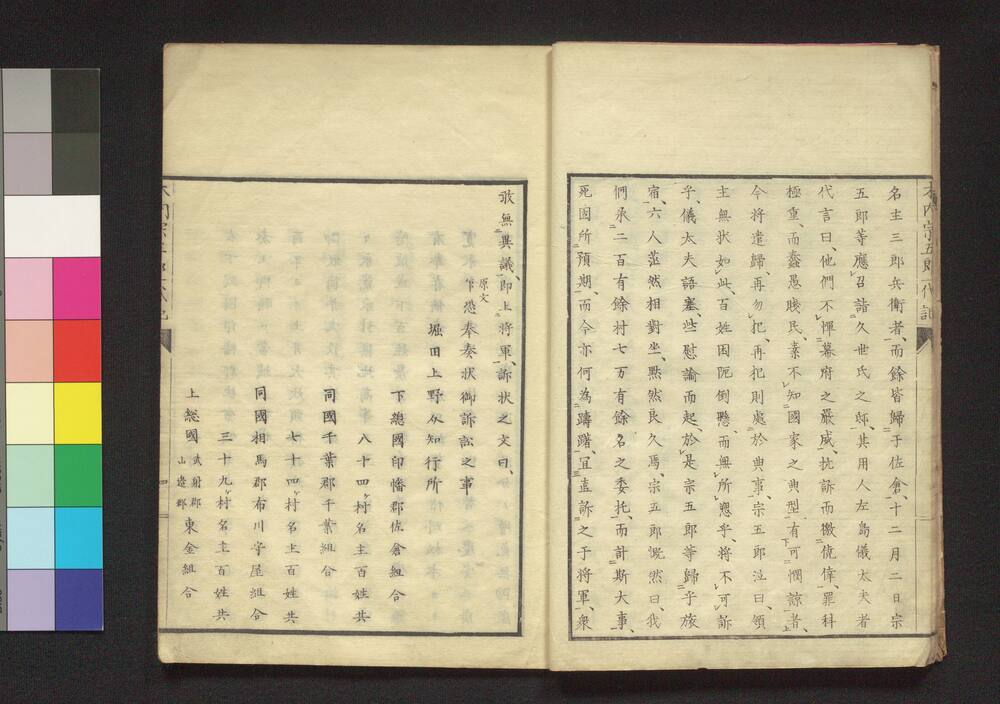 名主三郎兵衛者、而餘皆歸于佐倉、十二月二日宗
五郎等應召詣久世氏之邸、其用人左島儀太夫者
代言曰、他們不憚幕府之嚴威、抗訴而徼僥倖、罪科
極重、而蠢愚賤民、素不知國家之典型、有可憫諒者、
今將遣歸、再勿犯、再犯則處於典事、宗五郎泣曰、領
主無狀如此、百姓困阨倒懸、而無所愬乎、將不可訴
乎、儀太夫語塞、些慰諭而起、於是宗五郎等歸乎旅
宿、六人茫然相對坐、默然良久焉、宗五郎慨然曰、我
們承二百有餘村七万有餘名之委托、而計斯大事、
死固所預期、而今亦何為躊躇、宜直訴之于將軍、衆
敢無異議、即上將軍訴状之文曰、
原文
乍恐奉奏状御訴訟之事
堀田上野介知行所
下總國印幡郡佐倉組合
八十四ヶ村名主百姓共
同國千葉郡千葉組合
七十四ヶ村名主百姓共
同國相馬郡布川守屋組合
三十九ヶ村名主百姓共
上總國 武射郡 山邊郡 東金組合